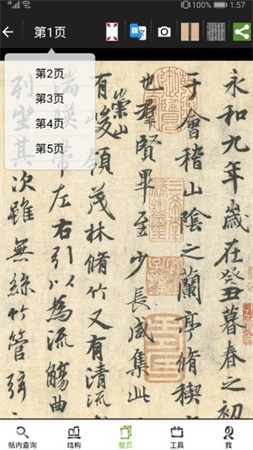 1:57
第1页
第2页
第3页
第4页
第5页
永和九年歲在癸丑暮春之初
于會稽山陰之蘭亭脩禊
也群賢畢至少長咸集此
有崇山峻領茂林脩竹又有清流
湍暎帶左右引以為流觴曲
列坐其次雖無絲竹管弦
帖内查询
结构
整页
工具
我